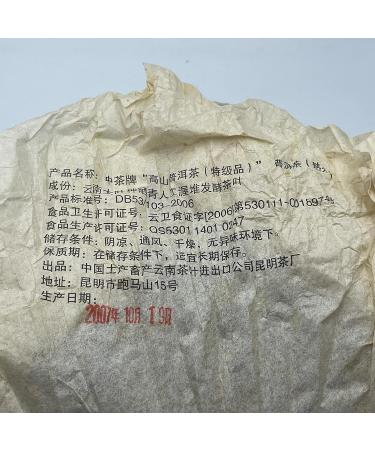 产品名称: 中茶牌“高山普洱茶(特级品)” 普洱茶(熟茶)
成份: 云南大叶种晒青人工渥堆发酵茶叶
产品标准号: DB53/103-2006
食品卫生许可证号: 云卫食证字[2006]第530111-01897号
食品生产许可证号: QS5301 1401 0247
储存条件: 阴凉、通风、干燥、无异味环境下。
保质期: 在储存条件下,适宜长期保存。
出品: 中国土产畜产云南茶叶进出口公司昆明茶厂
地址: 昆明市跑马山15号
生产日期:
2007年10月19日